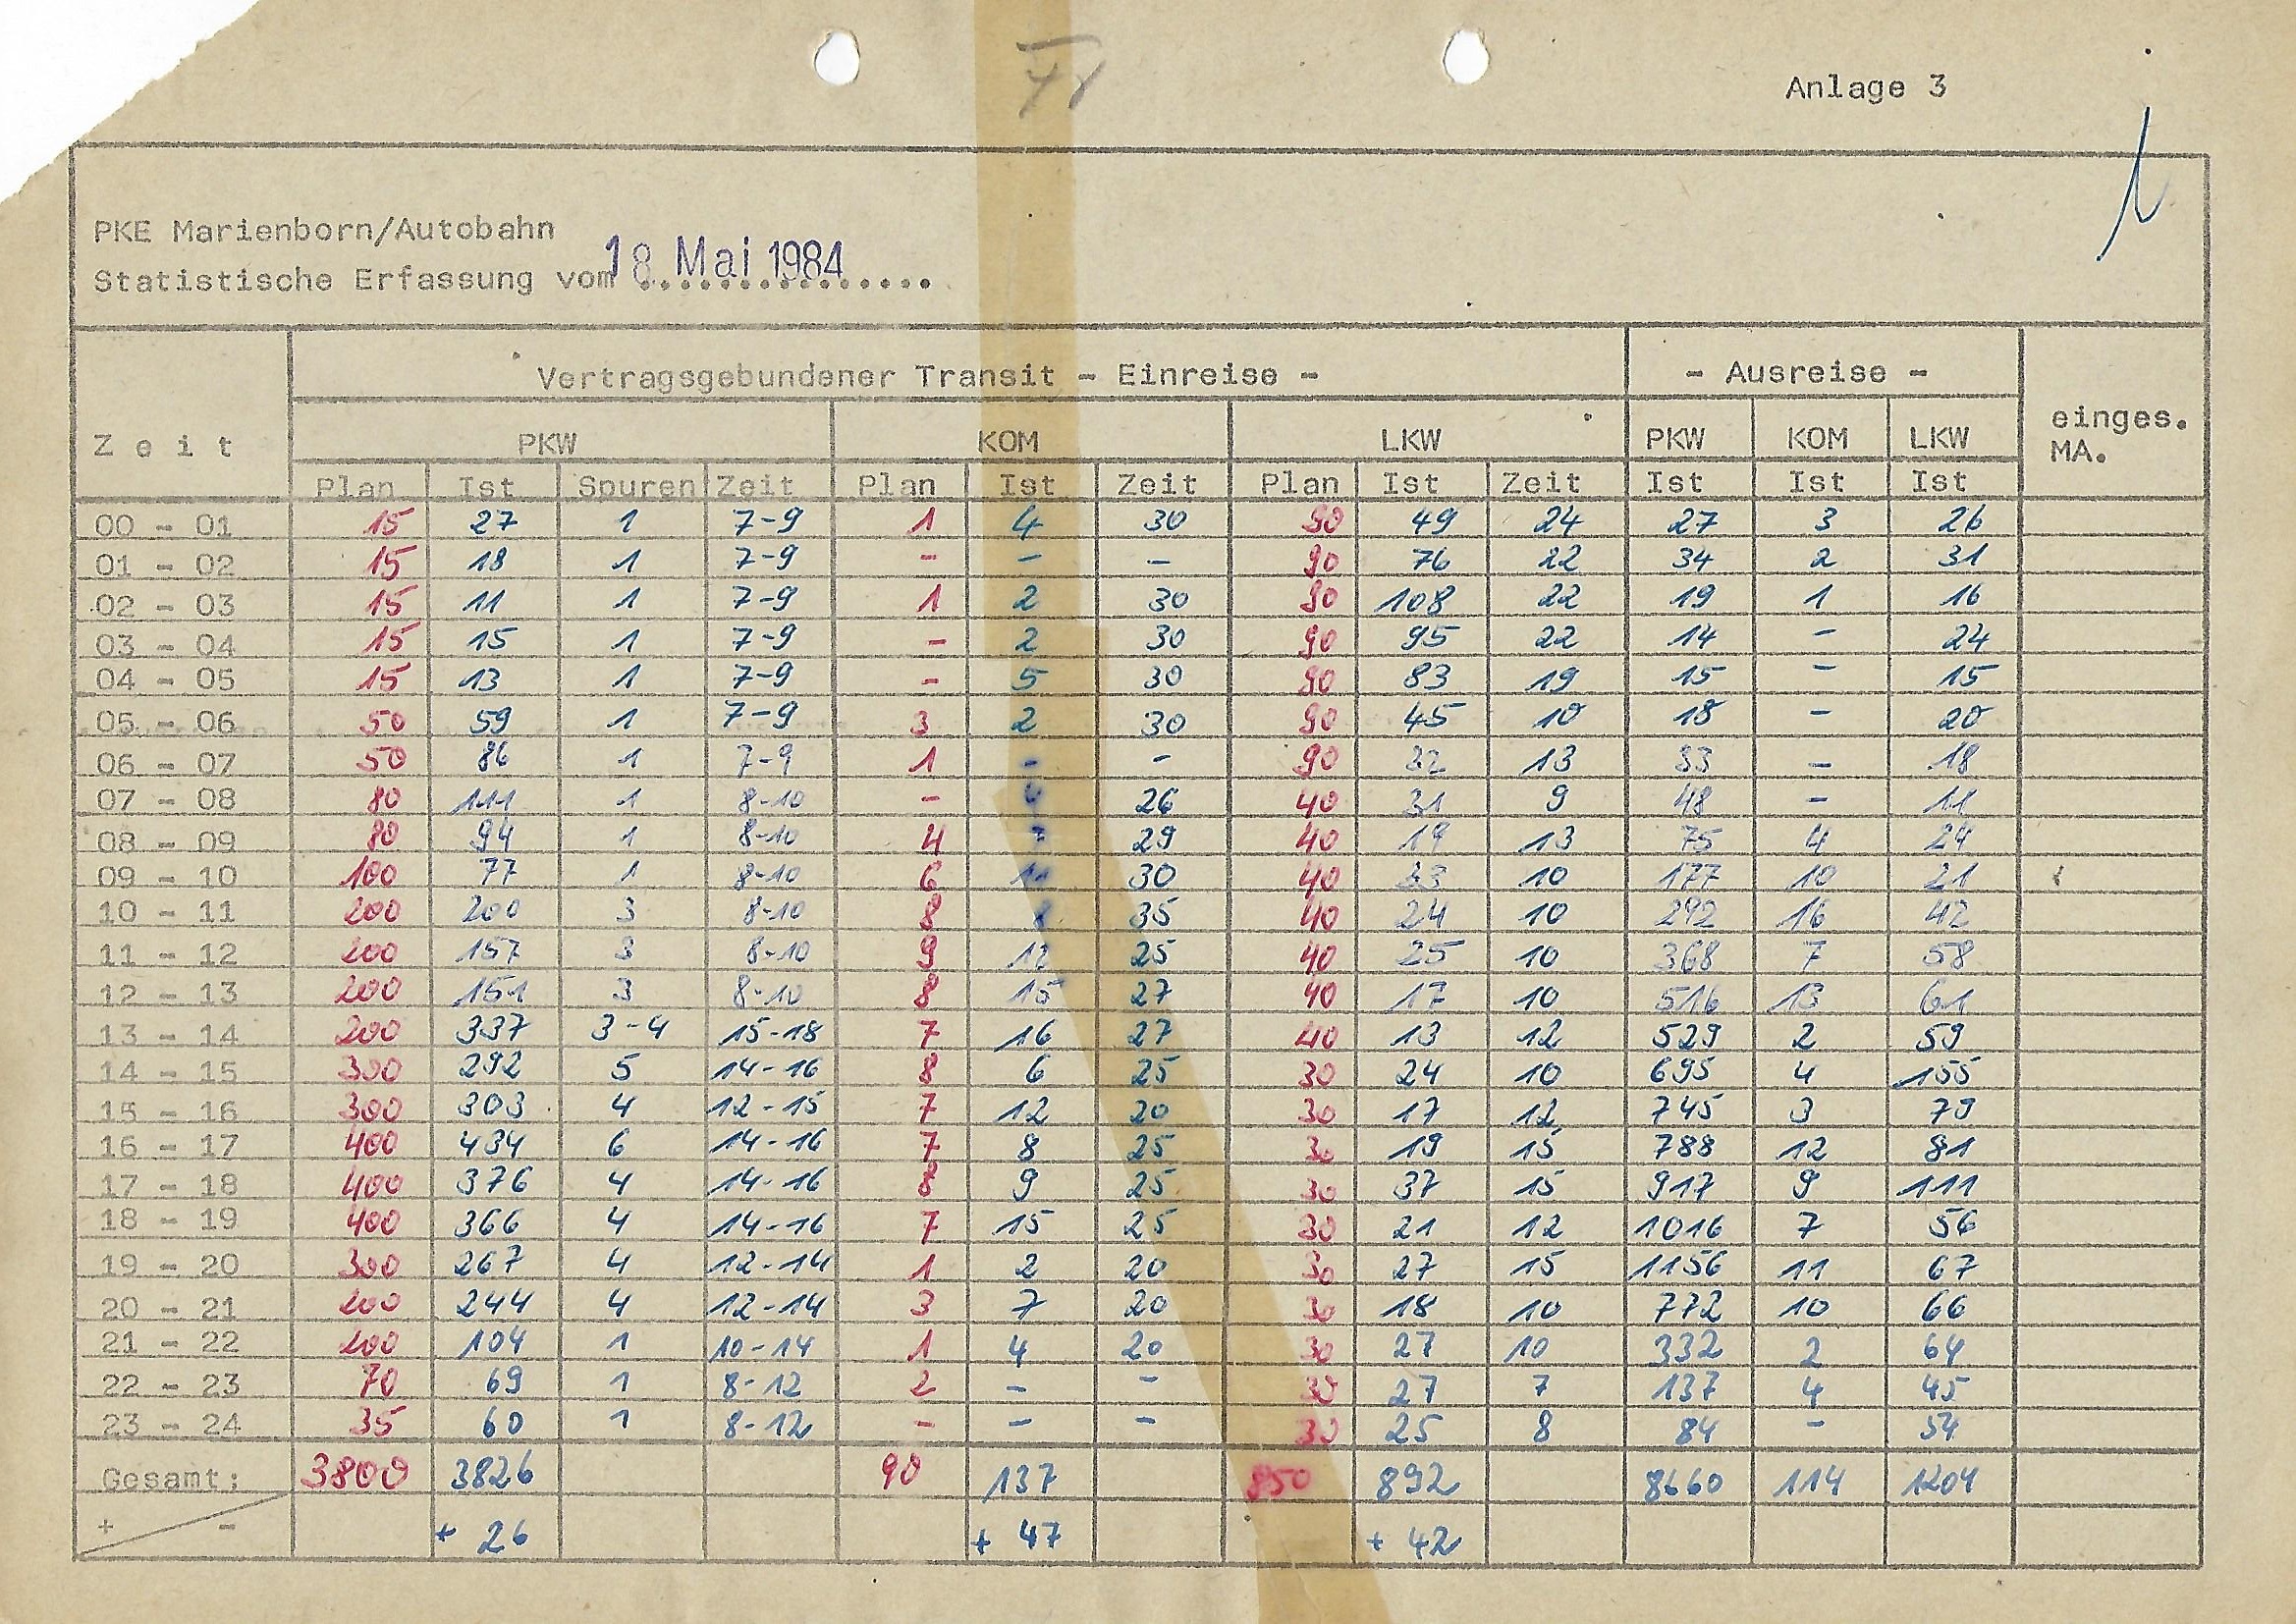 Anlage 3
1
PKE Marienborn/Autobahn
Statistische Erfassung vom 18. Mai 1984
Vertragsgebundener Transit - Einreise - - Ausreise -
Z e i t PKW KOM LKW PKW KOM LKW einges. MA.
Plan Ist Spuren Zeit Plan Ist Zeit Plan Ist Zeit Ist Ist Ist
00 - 01 15 27 1 7-9 1 4 30 90 49 24 27 3 26
01 - 02 15 18 1 7-9 - - - 90 76 22 34 2 31
02 - 03 15 11 1 7-9 1 2 30 90 108 22 19 1 16
03 - 04 15 15 1 7-9 - 2 30 90 95 22 14 - 24
04 - 05 15 13 1 7-9 - 5 30 90 83 19 15 - 15
05 - 06 50 59 1 7-9 3 2 30 90 45 10 18 - 20
06 - 07 50 86 1 7-9 1 - - 90 32 13 33 - 18
07 - 08 80 111 1 8-10 - 26 40 31 9 48 - 11
08 - 09 80 94 1 8-10 4 29 40 19 13 75 4 24
09 - 10 100 77 1 8-10 6 30 40 33 10 177 10 21
10 - 11 200 200 3 8-10 8 8 35 40 24 10 292 16 42
11 - 12 200 157 3 8-10 9 12 25 40 25 10 368 7 58
12 - 13 200 151 3 8-10 8 15 27 40 17 10 516 13 61
13 - 14 200 337 3-4 15-18 7 16 27 40 13 12 529 2 59
14 - 15 300 292 5 14-16 8 6 25 30 24 10 695 4 155
15 - 16 300 303 4 12-15 7 12 20 30 17 12 745 3 79
16 - 17 400 434 6 14-16 7 8 25 30 19 15 788 12 81
17 - 18 400 376 4 14-16 8 9 25 30 37 15 917 9 111
18 - 19 400 366 4 14-16 7 15 25 30 21 12 1016 7 56
19 - 20 300 267 4 12-14 1 2 20 30 27 15 1156 11 67
20 - 21 200 244 4 12-14 3 7 20 30 18 10 772 10 66
21 - 22 100 104 1 10-14 1 4 20 30 27 10 332 2 64
22 - 23 70 69 1 8-12 2 - - 30 27 7 137 4 45
23 - 24 35 60 1 8-12 - - - 30 25 8 84 - 54
Gesamt: 3800 3826 90 137 850 892 8660 114 1204
+ - + 26 + 47 + 42